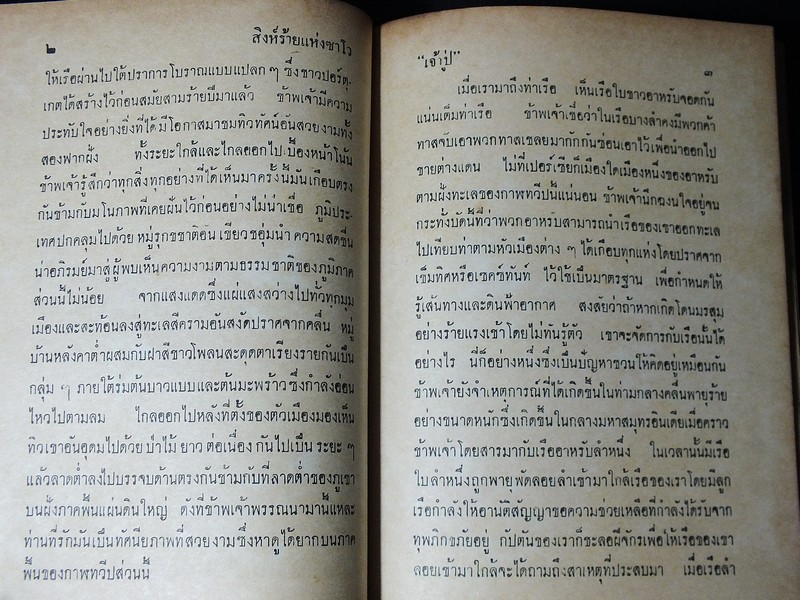 ๒
สิงห์ร้ายแห่งซาโว
ให้เรือผ่านไปใต้ปราการโบราณแบบแปลก ๆ ซึ่งชาวปอร์ตุ-
เกตได้สร้างไว้ก่อนสมัยสามร้อยปีมาแล้ว ข้าพเจ้ามีความ
ประทับใจอย่างยิ่งที่ได้มีโอกาสมาชมทิวทัศน์อันสวยงามทั้ง
สองฟากฝั่ง ทั้งระยะใกล้และไกลออกไปเบื้องหน้าโน้น
ข้าพเจ้ารู้สึกว่าทุกสิ่งทุกอย่างที่ได้เห็นมาครั้งนี้มันเกือบตรง
กันข้ามกับมโนภาพที่เคยฝันไว้ก่อนอย่างไม่น่าเชื่อ ภูมิประ-
เทศปกคลุมไปด้วย หมู่รุกขชาติอันเขียวชอุ่มนำ ความสดชื่น
น่าอภิรมย์มาสู่ผู้พบเห็นความงามตามธรรมชาติของภูมิภาค
ส่วนนี้ไม่น้อย จากแสงแดดซึ่งแผ่แสงสว่างไปทั่วทุกมุม
เมืองและสะท้อนลงสู่ทะเลสีครามอันสงัดปราศจากคลื่น หมู่
บ้านหลังคาต่ำผสมกับฝาสีขาวโพลนสะดุดตาเรียงรายกันเป็น
กลุ่ม ๆ ภายใต้ร่มต้นบาวแบบและต้นมะพร้าวซึ่งกำลังอ่อน
ไหวไปตามลม ไกลออกไปหลังที่ตั้งของตัวเมืองมองเห็น
ทิวเขาอันอุดมไปด้วยป่าไม้ ยาวต่อเนื่องกันไปเป็นระยะ ๆ
แล้วลาดต่ำลงไปบรรจบด้านตรงกันข้ามกับที่ลาดต่ำของภูเขา
บนฝั่งภาคพื้นแผ่นดินใหญ่ ดังที่ข้าพเจ้าพรรณนามานี้แหละ
ท่านที่รักมันเป็นทัศนียภาพที่สวยงามซึ่งหาดูได้ยากบนภาค
พื้นของกาฬทวีปส่วนนี้
“เจ้าปู่”
๓
เมื่อเรามาถึงท่าเรือ เห็นเรือใบชาวอาหรับจอดกัน
แน่นเต็มท่าเรือ ข้าพเจ้าเชื่อว่าในเรือบางลำคงมีพวกค้า
ทาสจับเอาพวกทาสเชลยมากักกันซ่อนเอาไว้เพื่อนำออกไป
ขายต่างแดน ไม่ที่เปอร์เซียก็เมืองใดเมืองหนึ่งของอาหรับ
ตามฝั่งทะเลของกาฬทวีปนี้แน่นอน ข้าพเจ้านึกฉงนใจอยู่จน
กระทั่งบัดนี้ที่ว่าพวกอาหรับสามารถนำเรือของเขาออกทะเล
ไปเทียบท่าตามหัวเมืองต่าง ๆ ได้เกือบทุกแห่งโดยปราศจาก
เข็มทิศหรือเซคซ์ทันท์ ไว้ใช้เป็นมาตรฐาน เพื่อกำหนดให้
รู้เส้นทางและดินฟ้าอากาศ สงสัยว่าถ้าหากเกิดโดนมรสุม
อย่างร้ายแรงเข้าโดยไม่ทันรู้ตัว เขาจะจัดการกับเรือนั้นได้
อย่างไร นี่ก็อย่างหนึ่งซึ่งเป็นปัญหาชวนให้คิดอยู่เหมือนกัน
ข้าพเจ้ายังจำเหตุการณ์ที่ได้เกิดขึ้นในท่ามกลางคลื่นพายุร้าย
อย่างขนาดหนักซึ่งเกิดขึ้นในกลางมหาสมุทรอินเดียเมื่อคราว
ข้าพเจ้าโดยสารมากับเรืออาหรับลำหนึ่ง ในเวลานั้นมีเรือ
ใบลำหนึ่งถูกพายุพัดลอยลำเข้ามาใกล้เรือของเราโดยมีลูก
เรือกำลังให้อานัติสัญญาขอความช่วยเหลือที่กำลังได้รับจาก
ทุพภิกขภัยอยู่ กัปตันของเราก็ชะลอฝีจักรเพื่อให้เรือของเขา
ลอยเข้ามาใกล้จะได้ถามถึงสาเหตุที่ประสบมา เมื่อเรือลำ